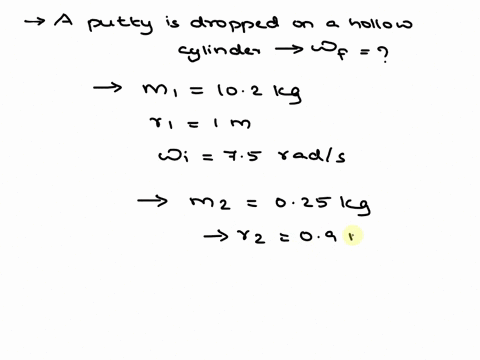 → A putty is dropped on a hollow
cylinder → ωf = ?
→ m1 = 10.2 kg
r1 = 1 m
ωi = 7.5 rad/s
→ m2 = 0.25 kg
→ r2 = 0.9